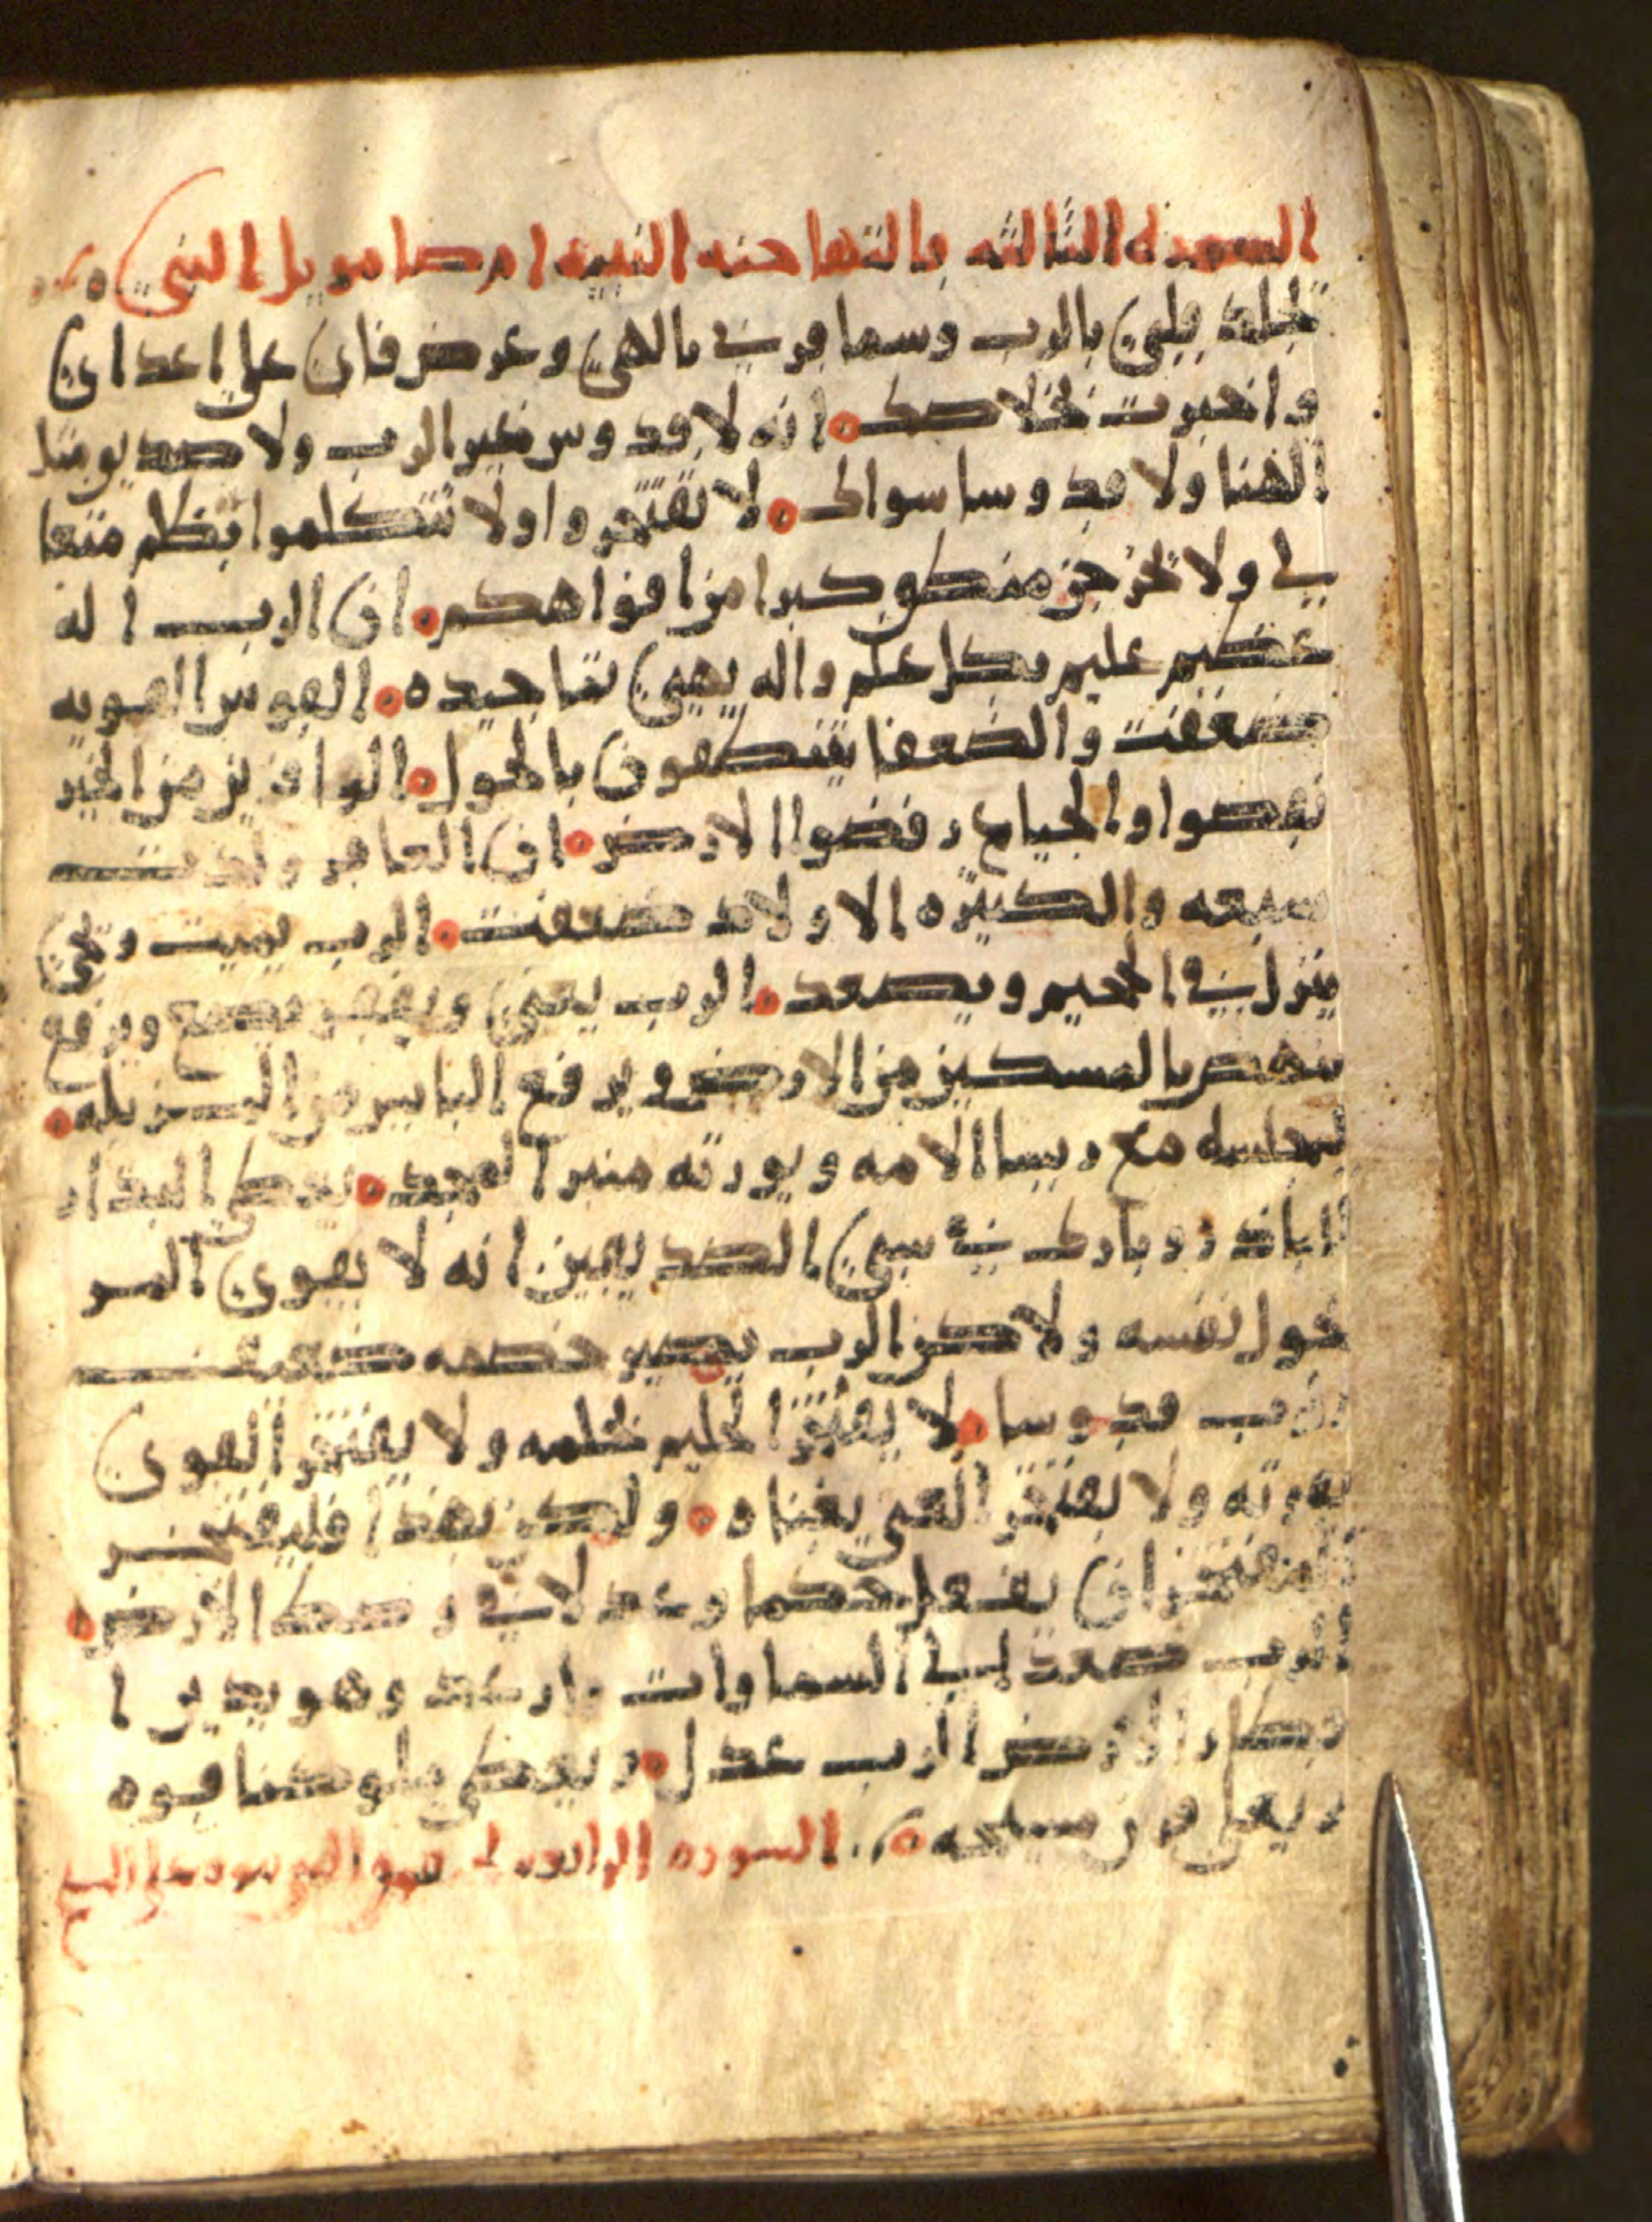 السوره الثالثه قالتها حنه النبيه ام صامويل النبي
تجلد قلبي بالرب وسما قرني بالهي وعرض فاي علي اعداي
واخبرت بخلاصك انه لا قدوس غير الرب ولا صديق مثل
الهنا ولا قدوسا سواك لا تفتخروا ولا تتكلموا بظلم متعا
لي ولا تخرجن منكم كبرا من افواهكم ان الرب اله
عظيم عليم بكل علم واله يهيي نتاجيده القوس القويه
ضعفت والضعفا يتنطقون بالحول الوافرين من الخبز
نقصوا والجياع رفضوا الارض ان العاقر ولدت
سبعه والكثيره الاولاد ضعفت الرب يميت ويحيي
ينزل في الجحيم ويصعد الرب يغني ويفقر يضع ويرفع
ينهض بالمسكين من الارض ويرفع البايس من المزبله
ليجلسه مع ريسا الامه ويورثه منبر المجد يعطي النذار
النذر وبارك في سني الصديقين انه لا يقوي المر
حول نفسه ولاكن الرب يصير خصمه ضعيف
الرب قدوسا لا يفتخر الحليم بحلمه ولا يفتخر القوي
بقوته ولا يفتخر الغني بغناه ولكن بهذا فليفتخر
المفتخر ان يفعل حكما وعدلا في وسط الارض
الرب صعد الي السماوات وارعد وهو يدين ا
قطار الارض الرب عدل ويعطي ملوكنا قوه
ويعلي قرن مسيحه السوره الرابعه